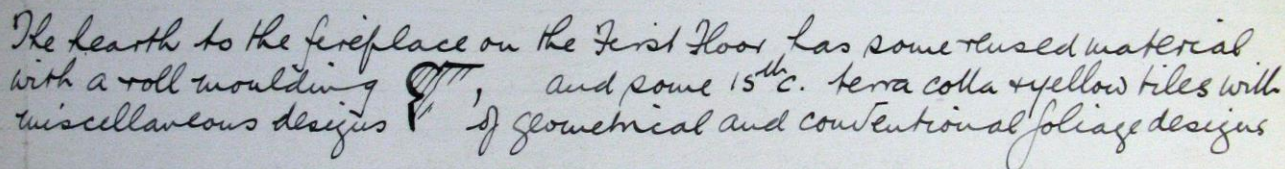 The hearth to the fireplace on the First Floor has some reused material
with a roll moulding , and some 15th c. terra cotta + yellow tiles with
miscellaneous designs of geometrical and conventional foliage designs